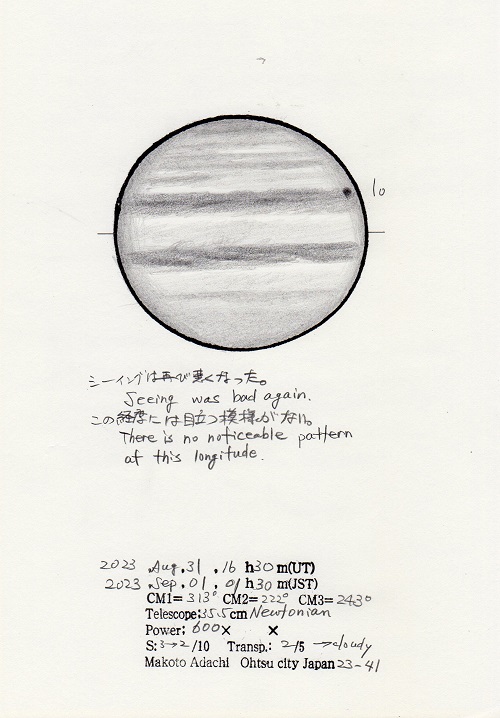 Io
シーイングは再び悪くなった。
Seeing was bad again.
この経度には目立つ模様がない。
There is no noticeable pattern
at this longitude.
2023 Aug. 31 . 16 h30 m(UT)
2023 Sep. 01 . 01 h30 m(JST)
CM1= 313° CM2= 222° CM3= 243°
Telescope:35.5cm Newtonian
Power: 600× ×
S: 3→2 /10 Transp.: 2/5 →cloudy
Makoto Adachi Ohtsu city Japan 23-41